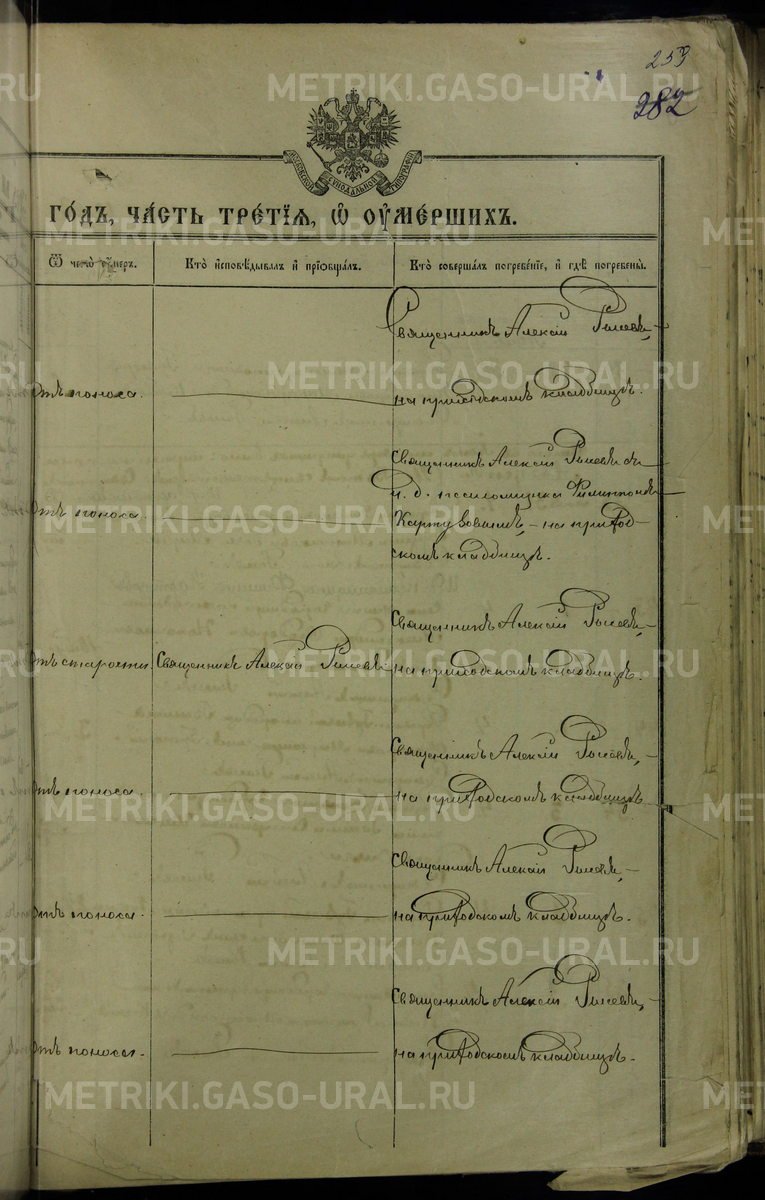 253
282
МОСКОВСКОЙ СѴНОДАЛЬНОЙ ТИПОГРАФІИ
ГОДЪ, ЧАСТЬ ТРЕТІЯ, Ѡ ОУМЕРШИХЪ.
Ѿ чегѡ оумеръ. Кто исповѣдывалъ и пріобщалъ. Кто совершалъ погребеніе, и гдѣ погребены.
Священникъ Алексій
Отъ поноса. на приходскомъ кладбищѣ.
Священникъ Алексій
и. д. псаломщика Филиппомъ
Отъ поноса. на приход-
скомъ кладбищѣ.
Священникъ Алексій
Отъ старости. Священникъ Алексій на приходскомъ кладбищѣ.
Священникъ Алексій
Отъ поноса. на приходскомъ кладбищѣ
Священникъ Алексій
Отъ поноса. на приходскомъ кладбищѣ.
Священникъ Алексій
Отъ поноса. на приходскомъ кладбищѣ.
METRIKI.GASO-URAL.RU